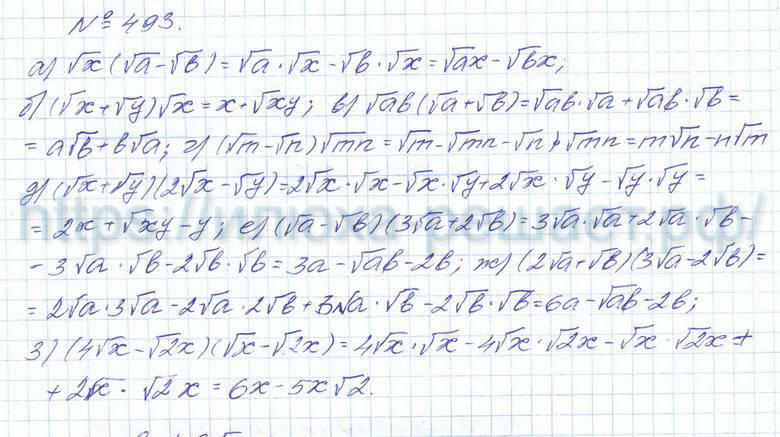 № 493.
а) √x (√a - √b) = √a · √x - √b · √x = √ax - √bx;
б) (√x + √y) √x = x + √xy; в) √ab (√a + √b) = √ab · √a + √ab · √b =
= a√b + b√a; г) (√m - √n) √mn = √m - √mn - √n · √mn = m√n - n√m
д) (√x + √y) (2√x - √y) = 2√x · √x - √x · √y + 2√x · √y - √y · √y =
= 2x + √xy - y; е) (√a - √b) (3√a + 2√b) = 3√a · √a + 2√a · √b -
- 3√a · √b - 2√b · √b = 3a - √ab - 2b; ж) (2√a + √b) (3√a - 2√b) =
= 2√a · 3√a - 2√a · 2√b + 3√a · √b - 2√b · √b = 6a - √ab - 2b;
з) (4√x - √2x) (√x - √2x) = 4√x · √x - 4√x · √2x - √x · √2x +
+ 2√x · √2x = 6x - 5x√2.